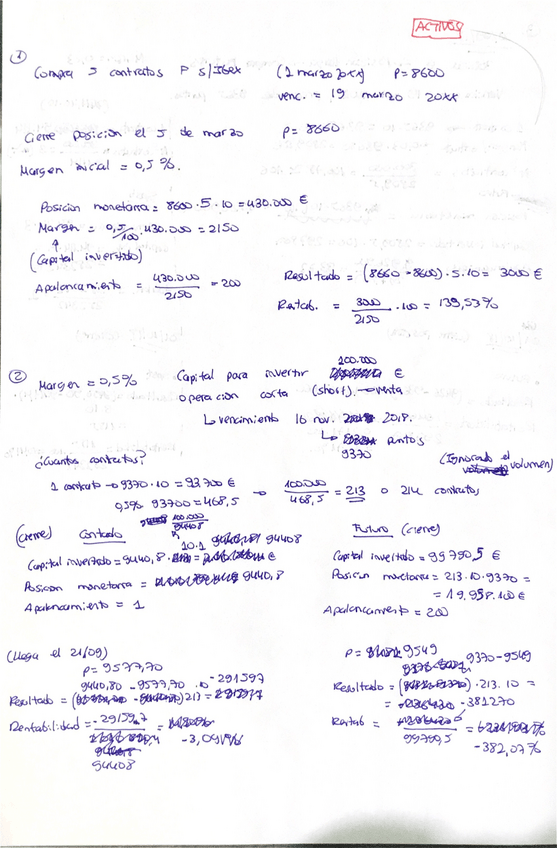 ACTIVOS
①
Compra 5 contratos F s/Ibex (1 marzo 20xx) P=8600
venc. = 19 marzo 20xx
Cierre posición el 5 de marzo P= 8660
Margen inicial = 0,5%.
Posicion monetaria = 8600·5·10 = 430.000 €
Margen = 0,5/100 · 430.000 = 2150
(Capital invertido)
Apalancamiento = 430.000/2150 = 200
Resultado = (8660-8600)·5·10 = 3000 €
Rentab. = 3000/2150 · 100 = 139,53%
②
Margen = 0,5%
Capital para invertir 100.000 €
operacion corta (short). → venta
↳ vencimiento 16 nov. 2018.
↳ puntos
9370
(Ignorado el volumen)
¿Cuantos contratos?
1 contrato → 9370·10 = 93700 €
0,5% 93700 = 468,5 → 100.000/468,5 = 213 o 214 contratos
(cierre) Contado
100.000
94408
10·1 94408
Capital invertido = 9440,8 · €
Posicion monetaria = 9440,8
Apalancamiento = 1
Futuro (cierre)
Capital invertido = 99790,5 €
Posicion monetaria = 213·10·9370 =
= 19.958.100 €
Apalancamiento = 200
(Llega el 21/09)
P = 9577,70
9440,80 - 9577,70 ·10 -291597
Resultado = ( )213 =
Rentabilidad = -29159,7 =
94408
-3,091%
P = 9549
9370-9549
Resultado = ( )·213·10 =
= -381270
Rentab =
99790,5
-382,07%